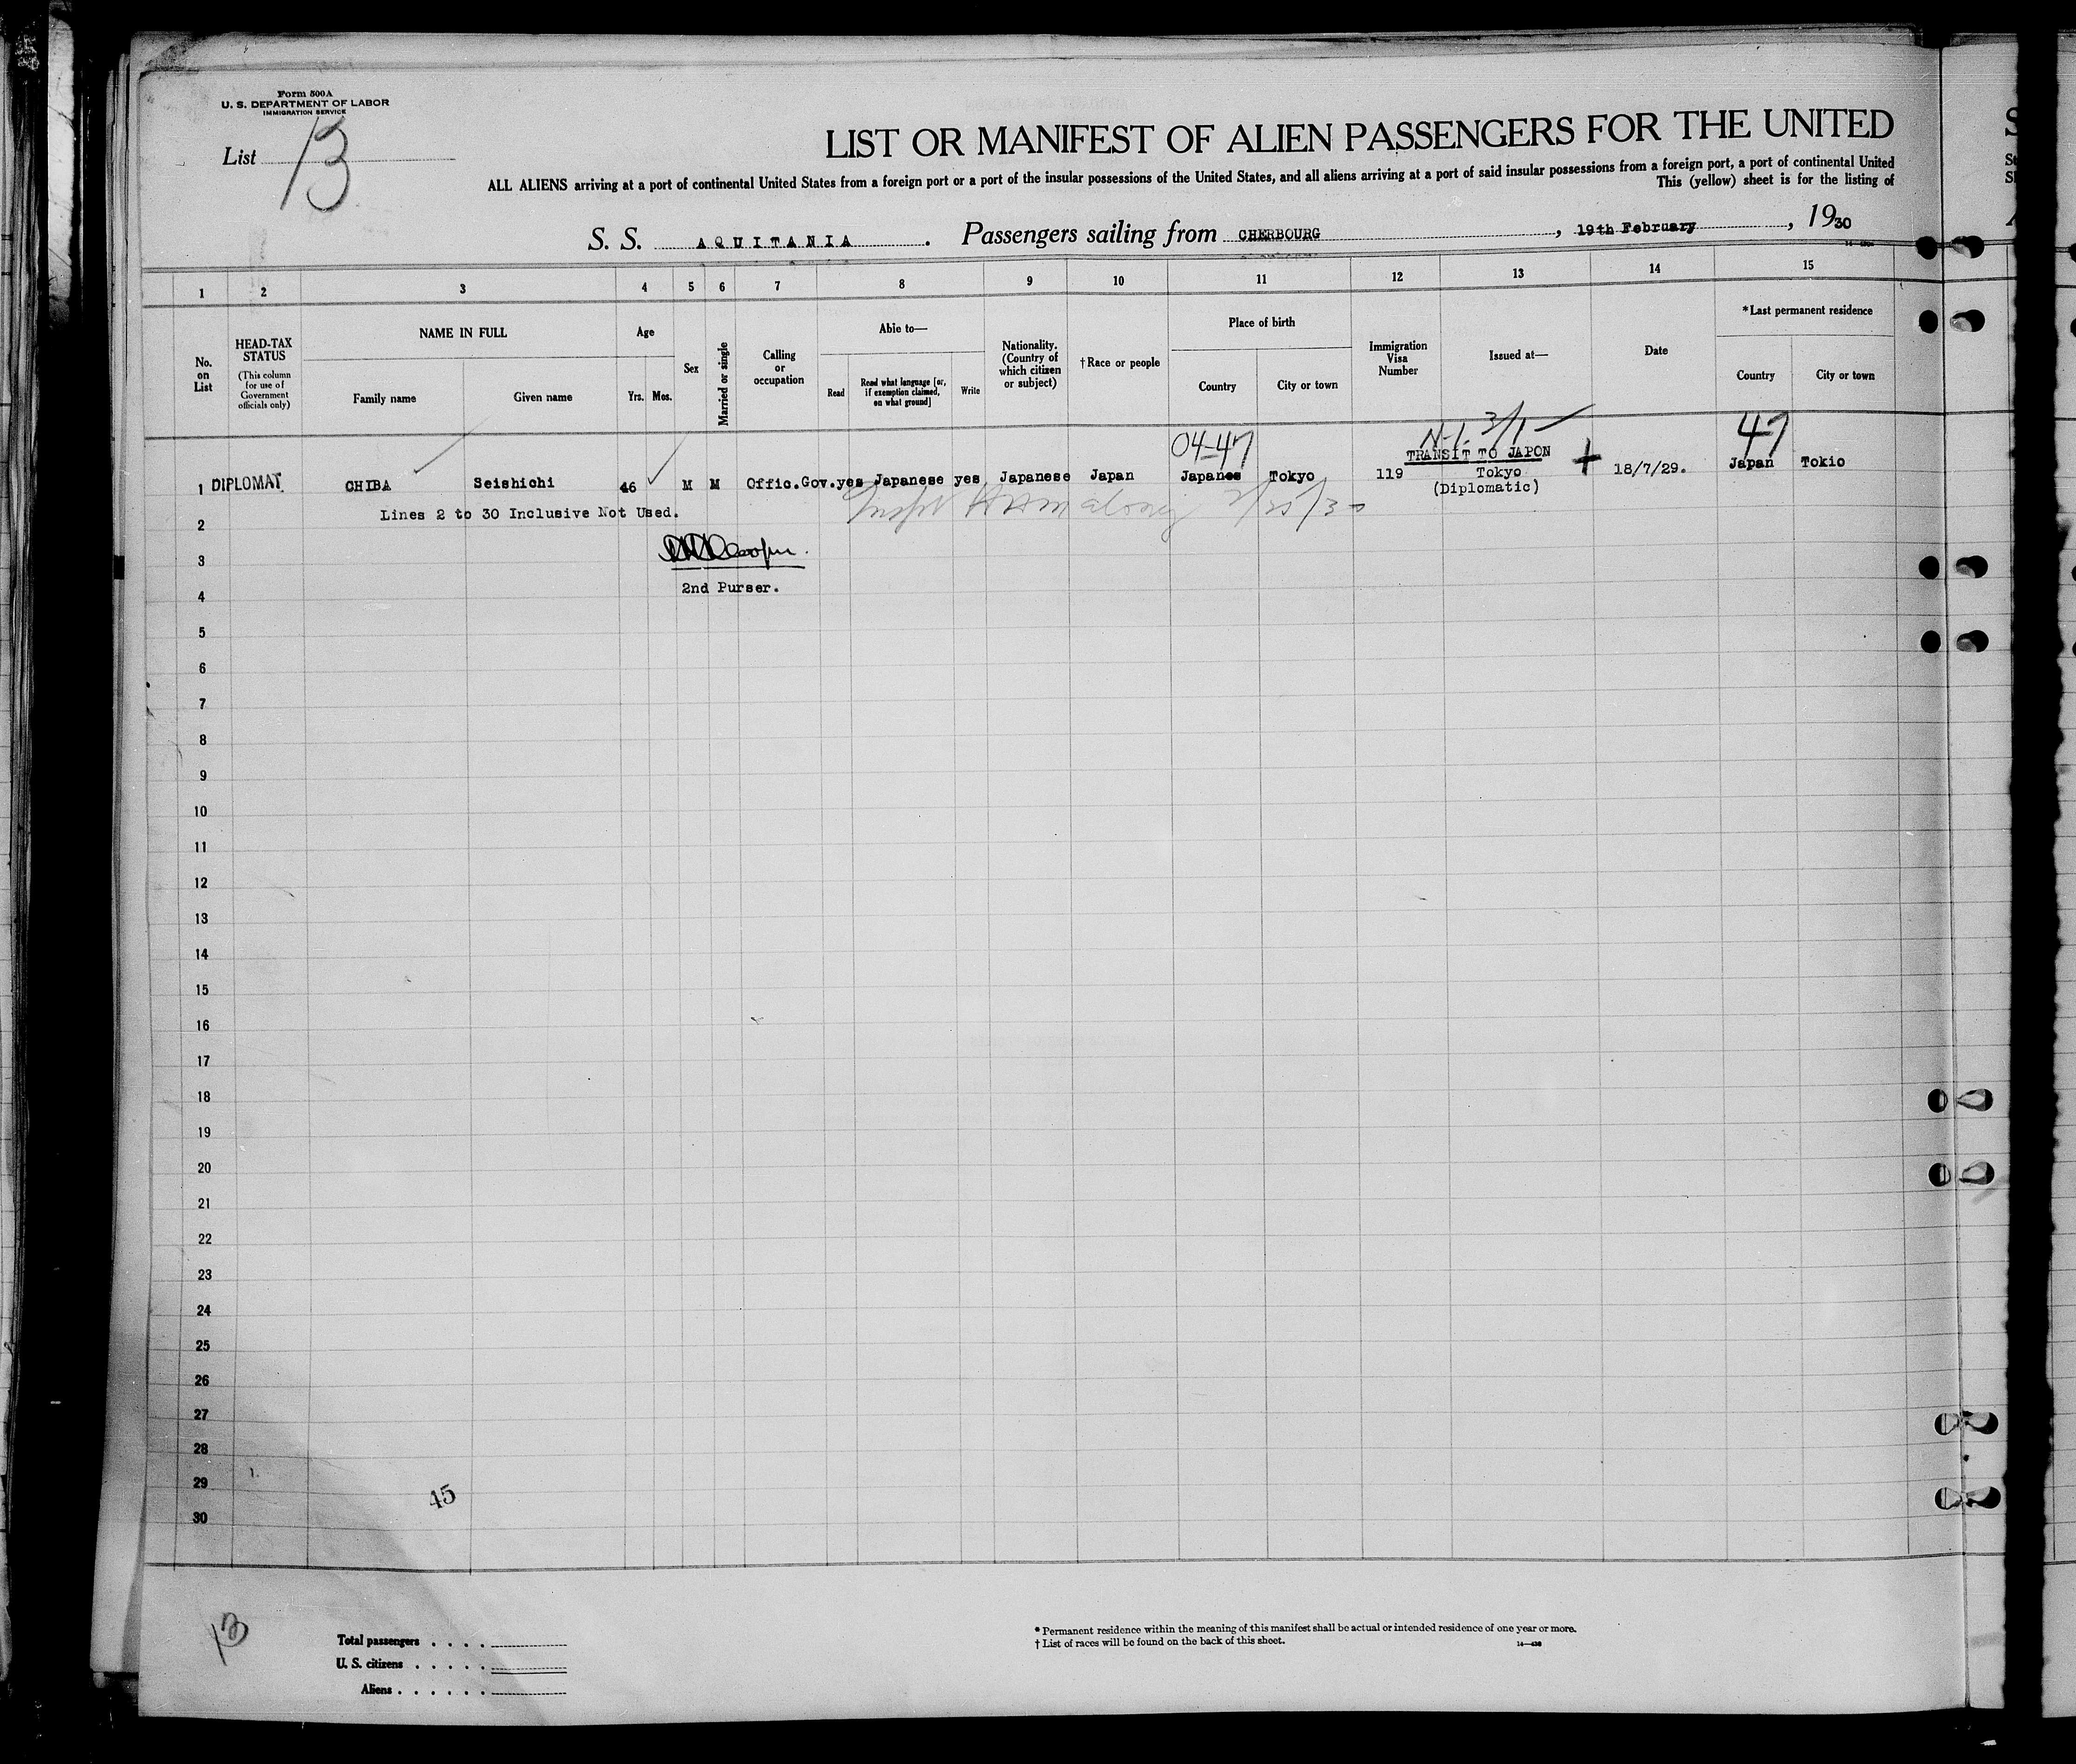 Form 500A
U. S. DEPARTMENT OF LABOR
IMMIGRATION SERVICE
List 13
LIST OR MANIFEST OF ALIEN PASSENGERS FOR THE UNITED
ALL ALIENS arriving at a port of continental United States from a foreign port or a port of the insular possessions of the United States, and all aliens arriving at a port of said insular possessions from a foreign port, a port of continental United
This (yellow) sheet is for the listing of
S. S. AQUITANIA. Passengers sailing from CHERBOURG, 19th February, 1930
1 2 3 4 5 6 7 8 9 10 11 12 13 14 15
No. on List
HEAD-TAX STATUS
(This column for use of Government officials only)
NAME IN FULL
Family name
Given name
Age
Yrs. Mos.
Sex
Married or single
Calling or occupation
Able to—
Read
Read what language [or, if exemption claimed, on what ground]
Write
Nationality. (Country of which citizen or subject)
†Race or people
Place of birth
Country
City or town
Immigration Visa Number
Issued at—
Date
*Last permanent residence
Country
City or town
04-47
N-1. 3/1
47
TRANSIT TO JAPON
1 DIPLOMAT CHIBA Seishichi 46 M M Offic.Gov. yes Japanese yes Japanese Japan Japanes Tokyo 119 Tokyo 18/7/29. Japan Tokio
(Diplomatic)
2 Lines 2 to 30 Inclusive Not Used.
3
2nd Purser.
4
5
6
7
8
9
10
11
12
13
14
15
16
17
18
19
20
21
22
23
24
25
26
27
28
29
45
30
13
Total passengers . . . .
U. S. citizens . . . . .
Aliens . . . . . .
* Permanent residence within the meaning of this manifest shall be actual or intended residence of one year or more.
† List of races will be found on the back of this sheet.